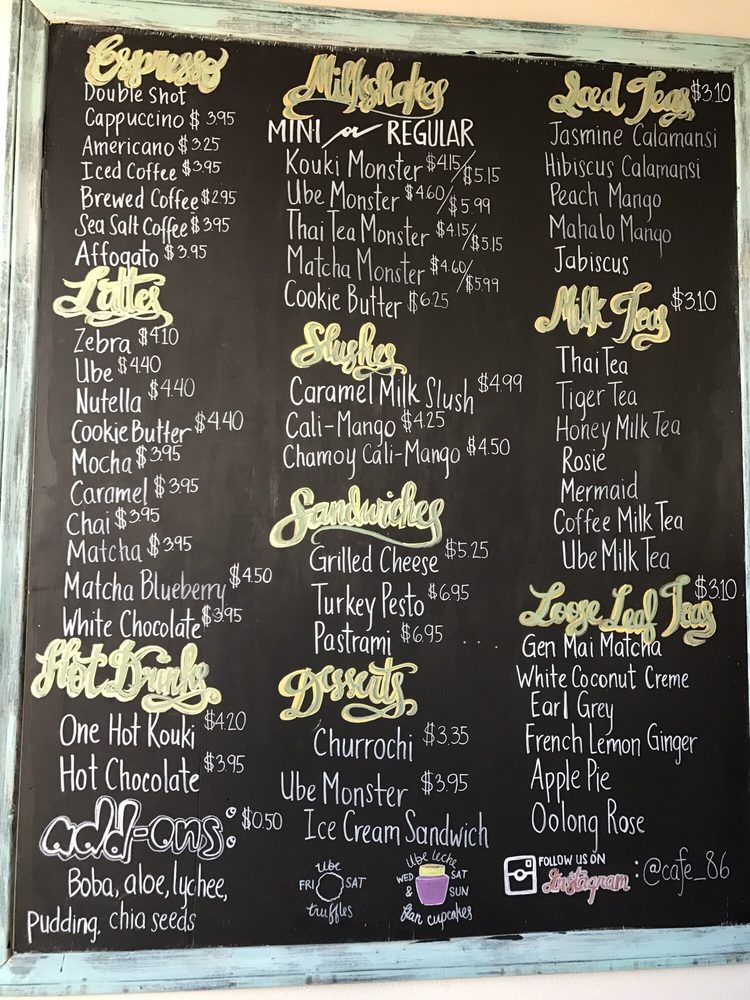 Espresso
Double Shot
Cappuccino $3.95
Americano $3.25
Iced Coffee $3.95
Brewed Coffee $2.95
Sea Salt Coffee $3.95
Affogato $3.95
Lattes
Zebra $4.10
Ube $4.40
Nutella $4.40
Cookie Butter $4.40
Mocha $3.95
Caramel $3.95
Chai $3.95
Matcha $3.95
Matcha Blueberry $4.50
White Chocolate $3.95
Hot Drinks
One Hot Kouki $4.20
Hot Chocolate $3.95
add-ons: $0.50
Boba, aloe, lychee,
pudding, chia seeds
Milkshakes
MINI or REGULAR
Kouki Monster $4.15/$5.15
Ube Monster $4.60/$5.99
Thai Tea Monster $4.15/$5.15
Matcha Monster $4.60/$5.99
Cookie Butter $6.25
Slushes
Caramel Milk Slush $4.99
Cali-Mango $4.25
Chamoy Cali-Mango $4.50
Sandwiches
Grilled Cheese $5.25
Turkey Pesto $6.95
Pastrami $6.95 ....
Desserts
Churrochi $3.35
Ube Monster $3.95
Ice Cream Sandwich
ube
FRI SAT
truffles
ube leche
WED SAT
& SUN
flan cupcakes
Iced Teas $3.10
Jasmine Calamansi
Hibiscus Calamansi
Peach Mango
Mahalo Mango
Jabiscus
Milk Teas $3.10
Thai Tea
Tiger Tea
Honey Milk Tea
Rosie
Mermaid
Coffee Milk Tea
Ube Milk Tea
Loose Leaf Teas $3.10
Gen Mai Matcha
White Coconut Creme
Earl Grey
French Lemon Ginger
Apple Pie
Oolong Rose
FOLLOW US ON
Instagram : @cafe_86